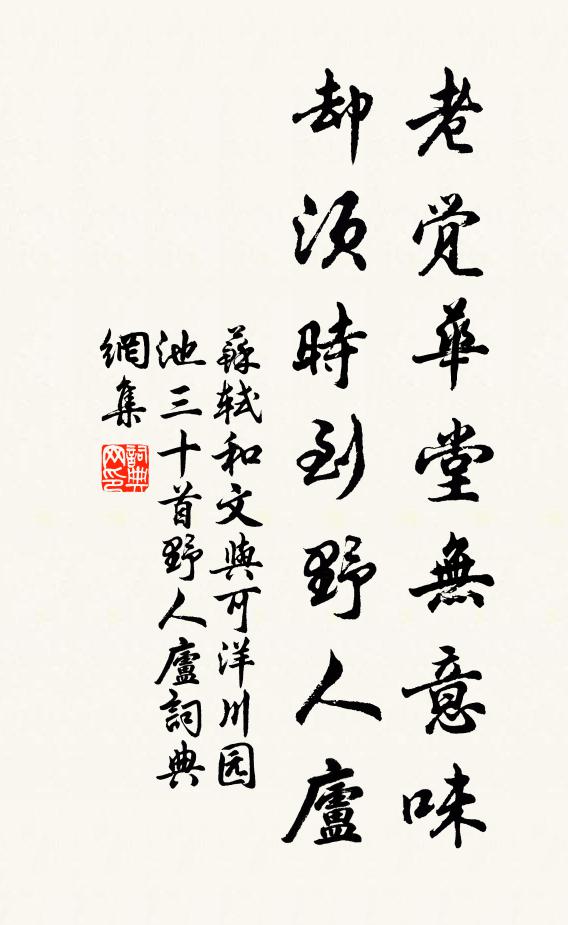 老覺華堂無意味
却須時到野人廬
蘇軾和文與可洋川园
池三十首野人廬詞典
網集
詞典
网印